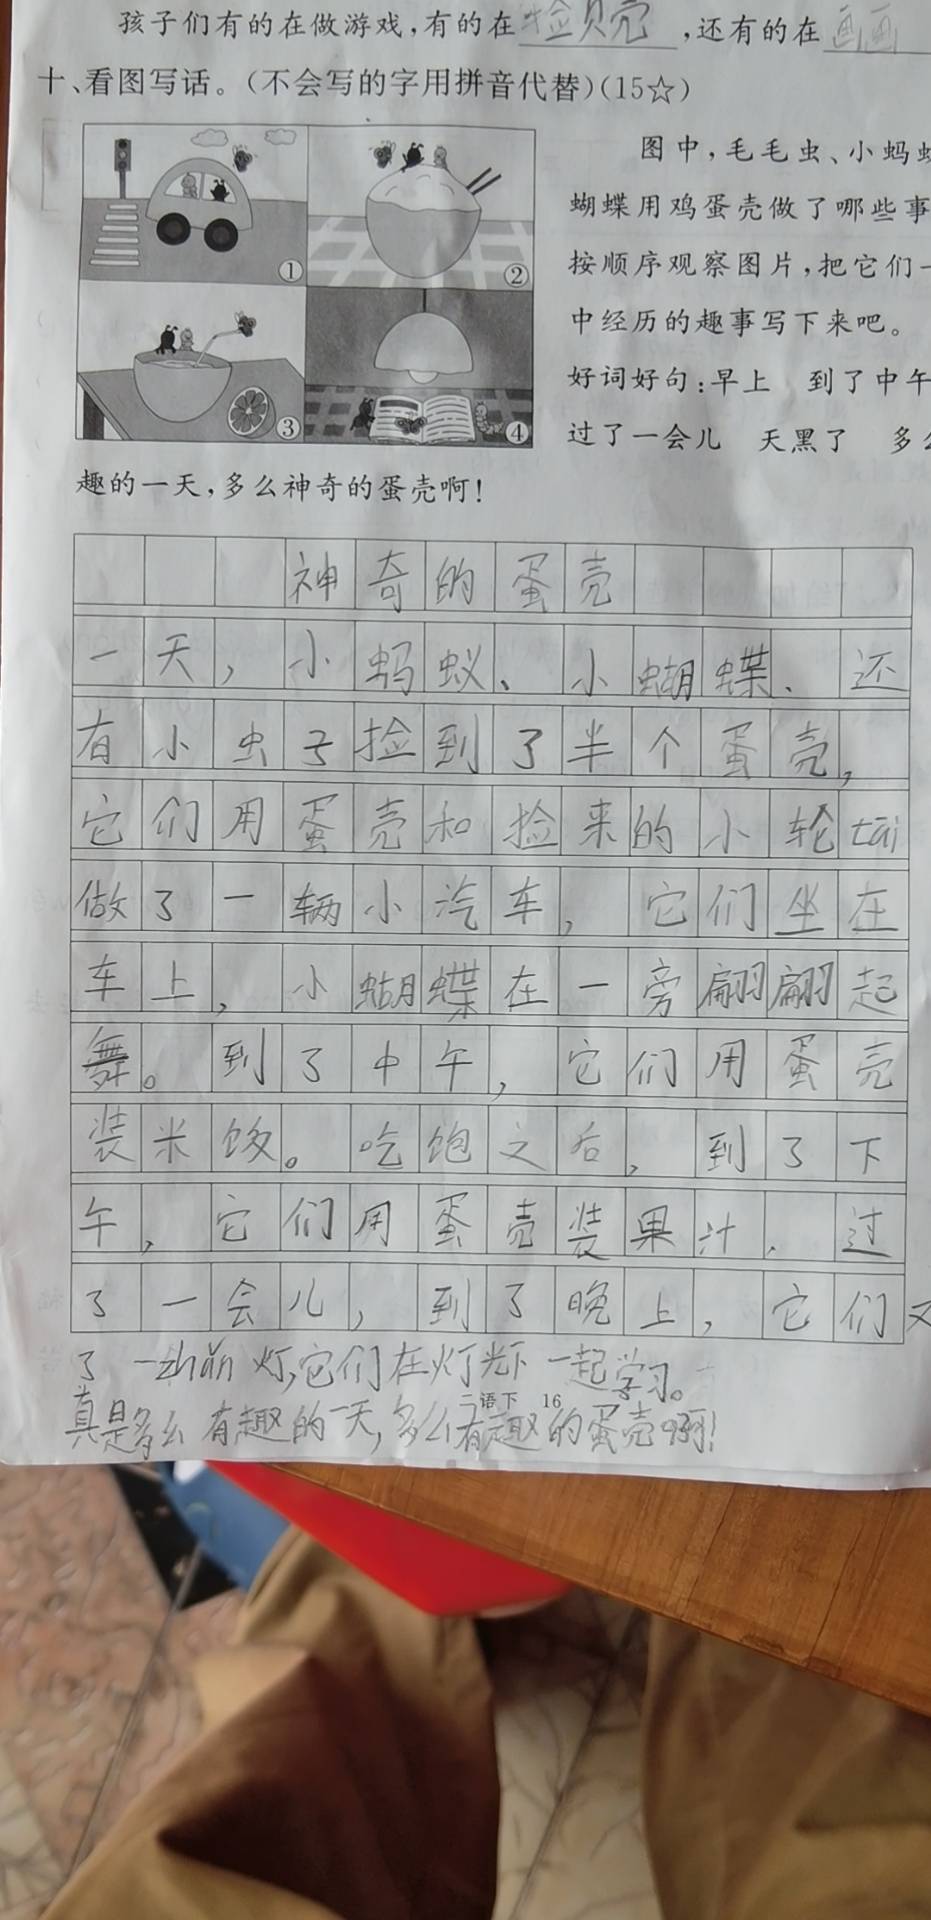 孩子们有的在做游戏,有的在捡贝壳,还有的在画画
十、看图写话。(不会写的字用拼音代替)(15☆)
图中,毛毛虫、小蚂
蝴蝶用鸡蛋壳做了哪些事
① ②
按顺序观察图片,把它们一
中经历的趣事写下来吧。
好词好句:早上 到了中午
③ ④
过了一会儿 天黑了 多
趣的一天,多么神奇的蛋壳啊!
神奇的蛋壳
一天,小蚂蚁、小蝴蝶、还
有小虫子捡到了半个蛋壳,
它们用蛋壳和捡来的小轮tāi
做了一辆小汽车,它们坐在
车上,小蝴蝶在一旁翩翩起
舞。到了中午,它们用蛋壳
装米饭。吃饱之后,到了下
午,它们用蛋壳装果汁,过
了一会儿,到了晚上,它们又
了一zhǎn灯,它们在灯光下一起学习。
二语下 16
真是多么有趣的一天,多么有趣的蛋壳啊!